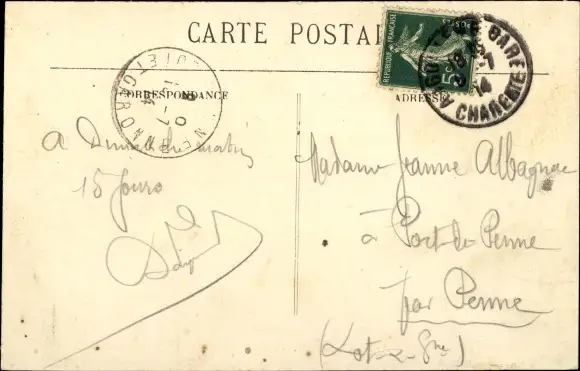 CARTE POSTALE
CORRESPONDANCE
ADRESSE
REPUBLIQUE FRANÇAISE
5c
GARE
14
CHARENTE
10-7
14
A Dimanche matin
15 Jours
Madame Jeanne Albagnac
à Port-de-Penne
par Penne
(Lot-&-Gne)